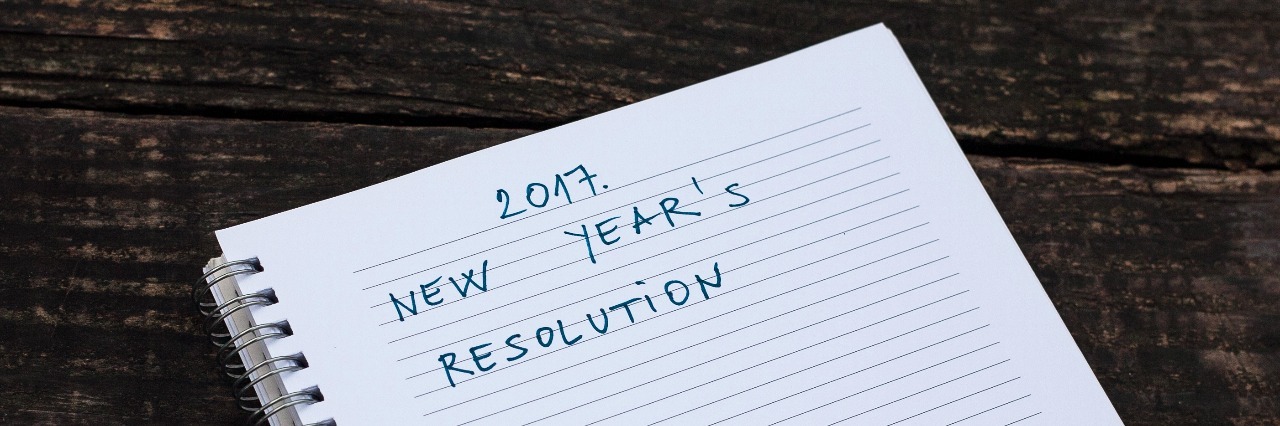 2017.
NEW YEAR'S
RESOLUTION